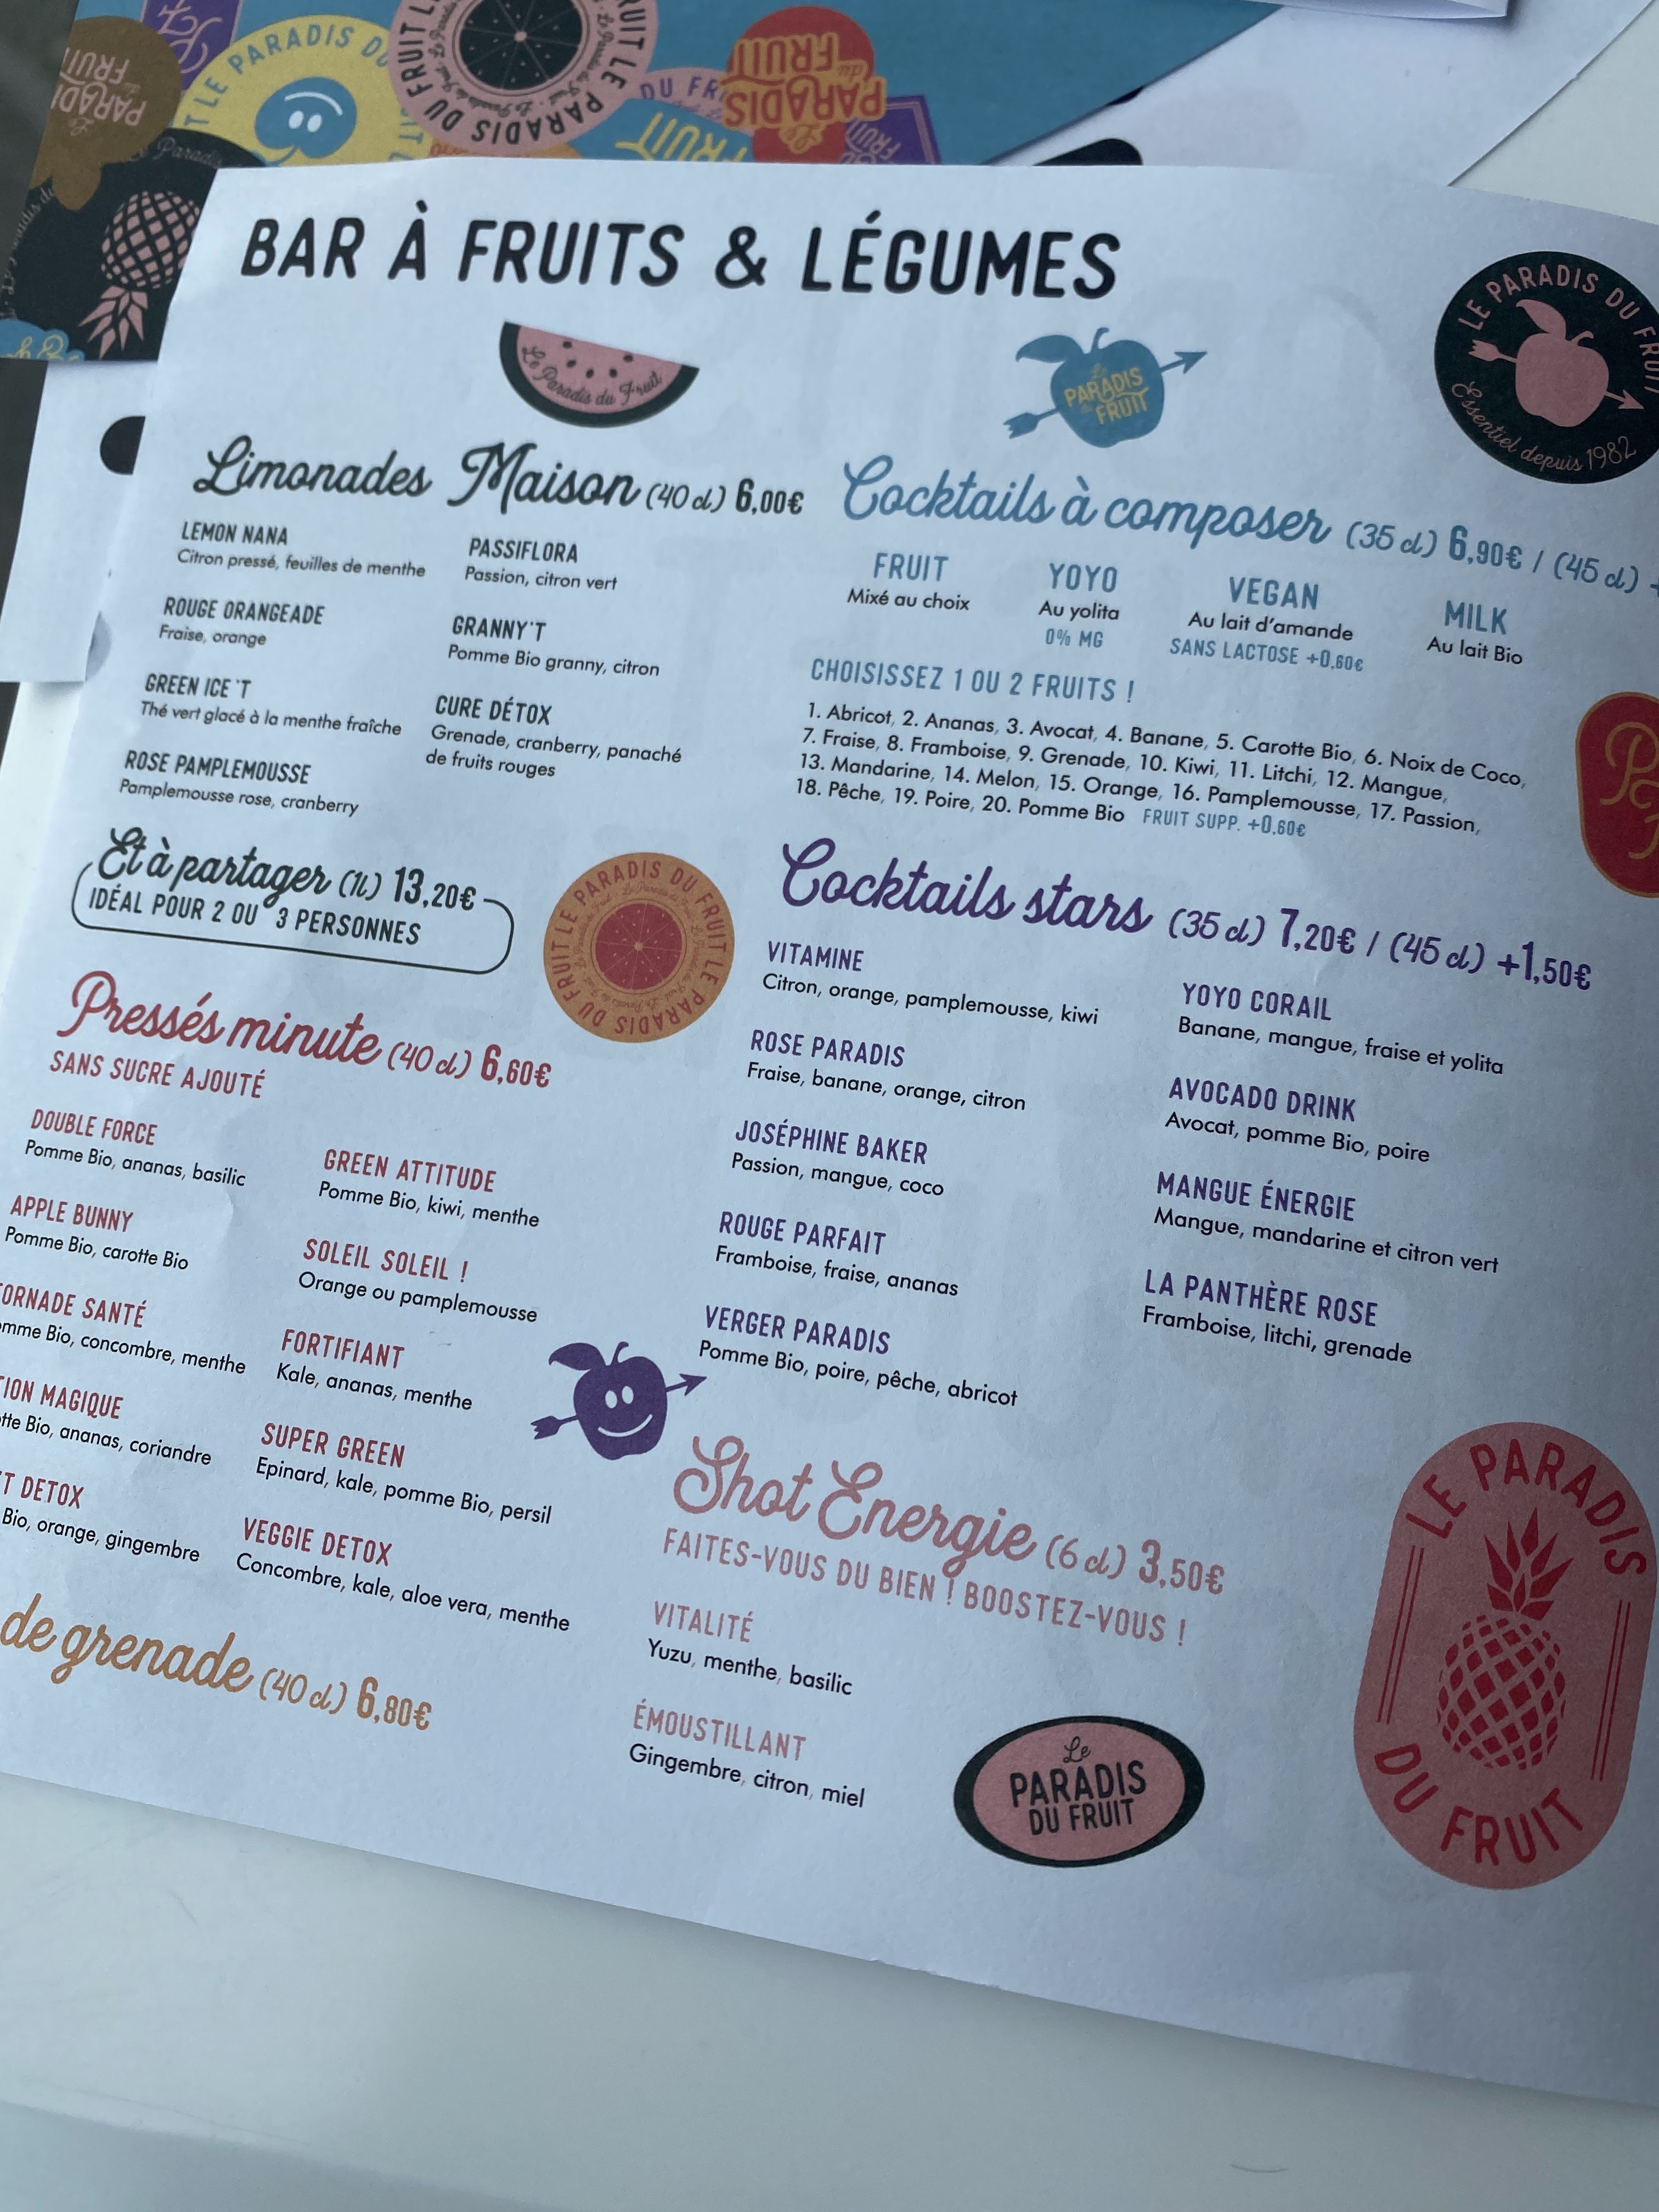 BAR À FRUITS & LÉGUMES
Le Paradis du Fruit
Le
PARADIS
du
FRUIT
LE PARADIS DU FRUIT
Essentiel depuis 1982
Limonades Maison (40 cl) 6,00€
LEMON NANA
Citron pressé, feuilles de menthe
ROUGE ORANGEADE
Fraise, orange
GREEN ICE 'T
Thé vert glacé à la menthe fraîche
ROSE PAMPLEMOUSSE
Pamplemousse rose, cranberry
PASSIFLORA
Passion, citron vert
GRANNY'T
Pomme Bio granny, citron
CURE DÉTOX
Grenade, cranberry, panaché
de fruits rouges
Et à partager (1L) 13,20€
IDÉAL POUR 2 OU 3 PERSONNES
LE PARADIS DU FRUIT LE PARADIS DU FRUIT
Pressés minute (40 cl) 6,60€
SANS SUCRE AJOUTÉ
DOUBLE FORCE
Pomme Bio, ananas, basilic
APPLE BUNNY
Pomme Bio, carotte Bio
ORNADE SANTÉ
mme Bio, concombre, menthe
ION MAGIQUE
tte Bio, ananas, coriandre
'T DETOX
Bio, orange, gingembre
GREEN ATTITUDE
Pomme Bio, kiwi, menthe
SOLEIL SOLEIL !
Orange ou pamplemousse
FORTIFIANT
Kale, ananas, menthe
SUPER GREEN
Epinard, kale, pomme Bio, persil
VEGGIE DETOX
Concombre, kale, aloe vera, menthe
de grenade (40 cl) 6,80€
Cocktails à composer (35 cl) 6,90€ / (45 cl) +
FRUIT
Mixé au choix
YOYO
Au yolita
0% MG
VEGAN
Au lait d'amande
SANS LACTOSE +0,60€
MILK
Au lait Bio
CHOISISSEZ 1 OU 2 FRUITS !
1. Abricot, 2. Ananas, 3. Avocat, 4. Banane, 5. Carotte Bio, 6. Noix de Coco,
7. Fraise, 8. Framboise, 9. Grenade, 10. Kiwi, 11. Litchi, 12. Mangue,
13. Mandarine, 14. Melon, 15. Orange, 16. Pamplemousse, 17. Passion,
18. Pêche, 19. Poire, 20. Pomme Bio FRUIT SUPP. +0,60€
Cocktails stars (35 cl) 7,20€ / (45 cl) +1,50€
VITAMINE
Citron, orange, pamplemousse, kiwi
ROSE PARADIS
Fraise, banane, orange, citron
JOSÉPHINE BAKER
Passion, mangue, coco
ROUGE PARFAIT
Framboise, fraise, ananas
VERGER PARADIS
Pomme Bio, poire, pêche, abricot
YOYO CORAIL
Banane, mangue, fraise et yolita
AVOCADO DRINK
Avocat, pomme Bio, poire
MANGUE ÉNERGIE
Mangue, mandarine et citron vert
LA PANTHÈRE ROSE
Framboise, litchi, grenade
Shot Énergie (6 cl) 3,50€
FAITES-VOUS DU BIEN ! BOOSTEZ-VOUS !
VITALITÉ
Yuzu, menthe, basilic
ÉMOUSTILLANT
Gingembre, citron, miel
Le
PARADIS
DU FRUIT
LE PARADIS
DU FRUIT